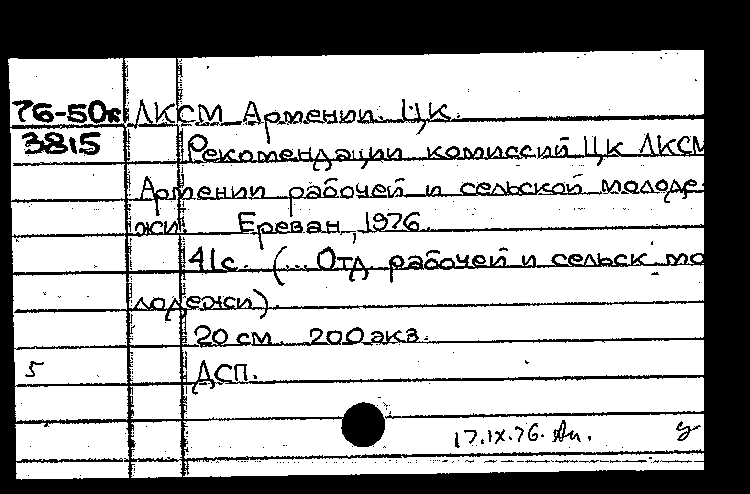 76-50к ЛКСМ Армении. ЦК.
3815 Рекомендации комиссий ЦК ЛКСМ
Армении рабочей и сельской молоде-
жи. Ереван, 1976.
41с. (...Отд. рабочей и сельск. мо
лодежи).
20 см. 200 экз.
5 ДСП.
17.IX.76.